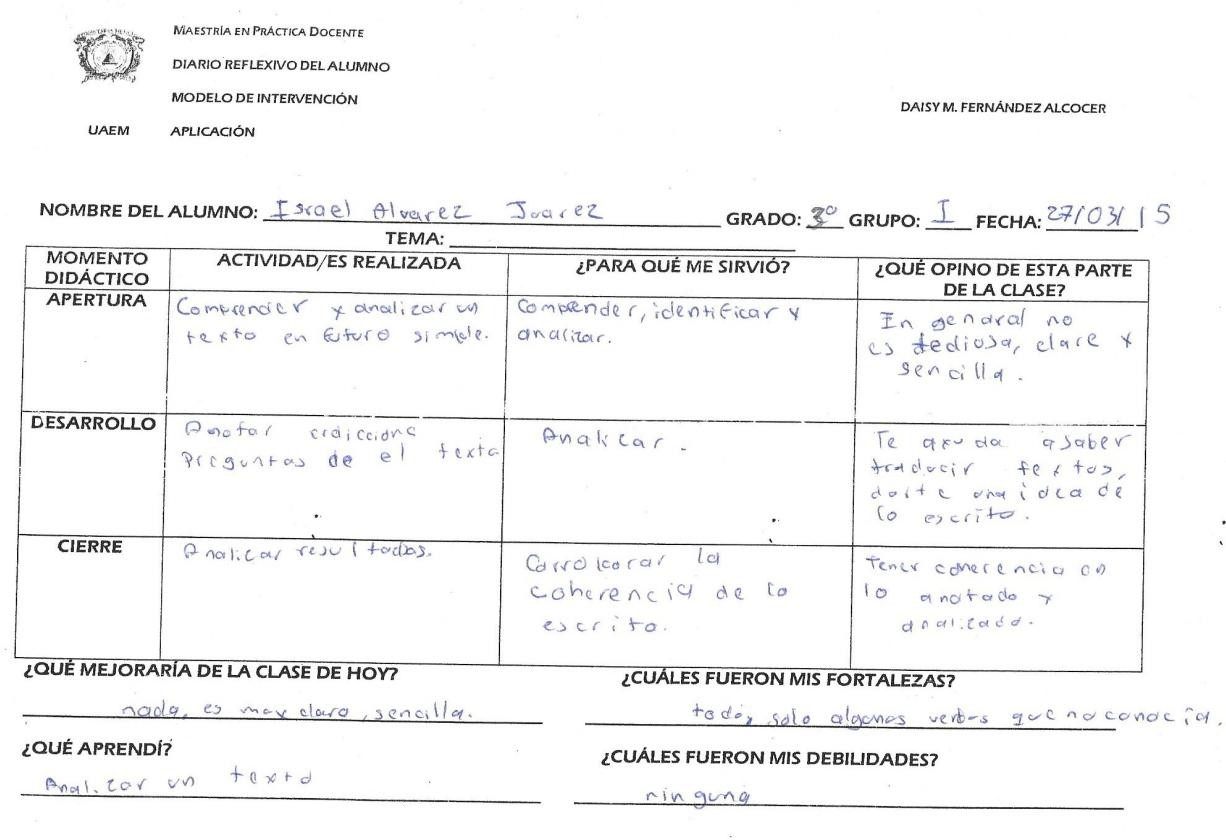 MAESTRÍA EN PRÁCTICA DOCENTE
DIARIO REFLEXIVO DEL ALUMNO
MODELO DE INTERVENCIÓN
DAISY M. FERNÁNDEZ ALCOCER
UAEM APLICACIÓN
NOMBRE DEL ALUMNO: Israel Alvarez Juarez GRADO: 3° GRUPO: I FECHA: 27/03/15
TEMA:
MOMENTO DIDÁCTICO
ACTIVIDAD/ES REALIZADA
¿PARA QUÉ ME SIRVIÓ?
¿QUÉ OPINO DE ESTA PARTE
DE LA CLASE?
APERTURA
Comprender y analizar un
texto en futuro simple.
Comprender, identificar y
analizar.
In general no
es tediosa, clare y
sencilla.
DESARROLLO
Anotar
Preguntas de el texto
Analicar.
Te ayuda a saber
traducir textos,
darte una idea de
lo escrito.
CIERRE
Analicar resultados.
Corroborar la
coherencia de lo
escrito.
Tener coherencia en
lo anotado y
analizado.
¿QUÉ MEJORARÍA DE LA CLASE DE HOY?
nada, es muy clara, sencilla.
¿CUÁLES FUERON MIS FORTALEZAS?
todo, solo algunos verbos que no conocía.
¿QUÉ APRENDÍ?
Analizar un texto
¿CUÁLES FUERON MIS DEBILIDADES?
ninguna